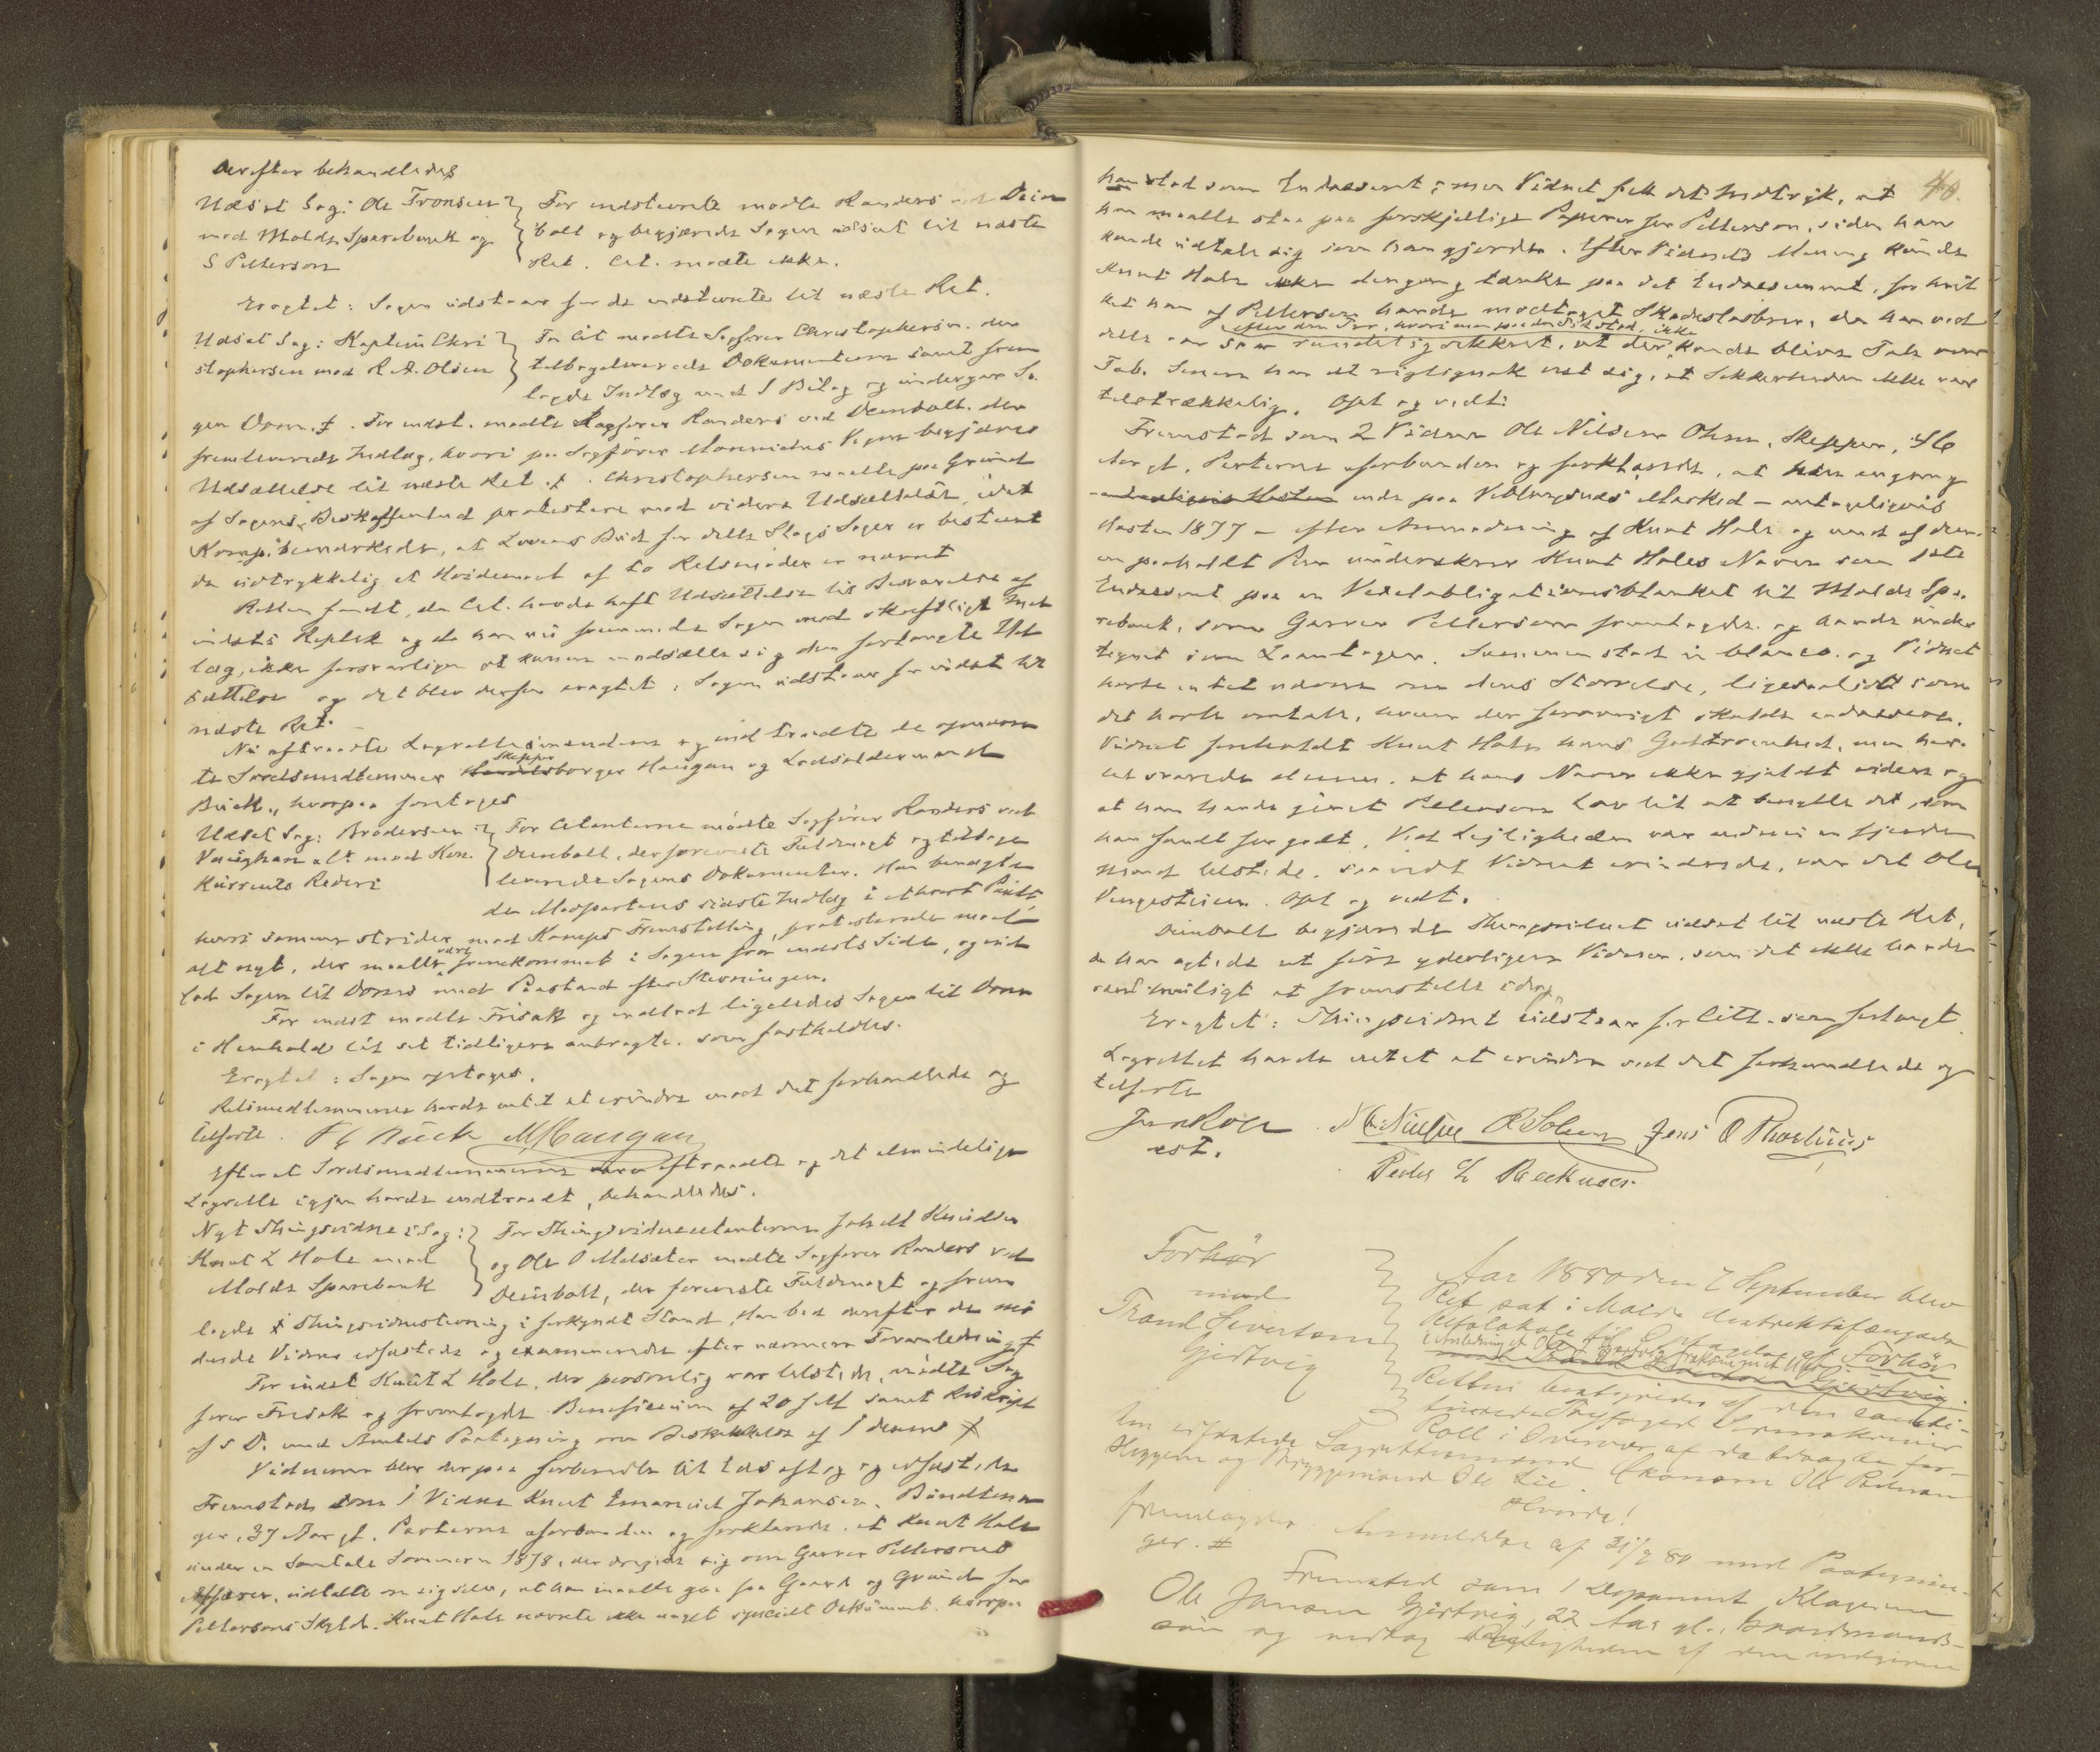 derefter behandledes
Udsat Sag: Ole Fronsen
mod Molde Sparebank og
S Petterson
For indstevnte mødte Randers ved Dein
boll og begjærede Sagen udsat til næste
Ret. Cit. mødte ikke.
Eragtet: Sagen udstaar for de indstevnte til næste Ret.
Udsat Sag: Kaptein Chri
stophersen mod R. A. Olsen
For Cit mødte Sagfører Christophersen. der
tilbageleverede Dokumenterne samt frem
lagde Indlæg med 1 Bilag og indlod Sa-
gen Dom. ⸸. For indst. mødte Sagfører Randers ved Deinboll. der
fremleverede Indlæg, hvori paa Sagfører Vegne begjæres
Udsættelse til næste Ret ⸸. Christophersen maatte paa Grund
af Sagens Beskaffenhed protestere mod videre Udsættelse, idet
Komp. bemærkede, at Lovens Bud for dette Slags Sager er bestemt
da udtrykkelig et Hvidemaal af to Retsmøder er nævnt
Retten fandt, da Cit. havde haft Udsættelse til Besvarelse af
indsts Replik og da han nu fremmede Sagen med skriftligt Ind
læg, ikke forsvarligen at kunne modsætte sig den forlangte Ud
sættelse og det blev derfor eragtet: Sagen udstaar for indst til
næste Ret.
Nu aftraadte Lagrettesmændene og indtraadte de opnævn
te Søretsmedlemmer Skipper
Haugan og Lodsoldermand
Buck, hvorpaa foretoges
Udsat Sag: Brødersen
Vaughan alt mod Kon.
Kurrents Rederi
For Citanterne mødte Sagfører Randers ved
Deinboll, der foreviste Fuldmagt og tilbage
leverede Sagens Dokumenter. Han benægte
de Modpartens sidste Indlæg i ethvert Punkt,
hvori samme strider mod Komps Fremstilling, protesterede mod
alt nyt, der maatte være fremkommet i Sagen fra indsts Side, og ind
lod Sagen til Doms med Paastand efter Stevningen.
For indst mødte Frisak og indlod ligeledes Sagen til Dom
i Henhold til det tidligere anbragte. som fastholdtes.
Eragtet: Sagen optages.
Retsmedlemmerne havde intet at erindre mod det forhandlede og
tilførte. F C Buck M Haugan
Efterat Søretsmedlemmerne vare aftraadte og det almindelige
Lagrette igjen havde indtraadt, behandledes.
Nyt Thingsvidne i Sag:
Knut L Hole mod
Molde Sparebank
For Thingsvidnecitanterne Knudsen
og Ole O Melsæter mødte Sagfører Randers ved
Deinboll, der foreviste Fuldmagt og frem
lagde ⸸ Thingsvidnestevning i forkyndt Stand. Han bad derefter de mø
dende Vidner edfæstede og examinerede efter nærmere Foranledning ⸸
For indst Knut L Hole, der personlig var tilstede, mødte Sag
fører Frisak og fremlagde Beneficium af 20 Juli samt Reskript
af s. D. med Amtets Paategning om Beskikkelse af 1 dennes ⸸
Vidnerne blev derpaa formanede til Eds aflæg og edfæstede
Fremstod som 1 Vidne Knut Emanuel Johansen, Bundtma
ger, 37 Aar gl. Parterne uforbunden og forklarede. at Knut Hole
under en Samtale Sommeren 1878, der drejede sig om Garver Pettersens
Affærer, udtalte om sig selv, at han maatte gaa fra Gaard og Grund for
Pettersens Skyld. Knut Hole nævnte ikke noget specielt Dokument. hvorpaa
40.
han stod som Endossent; men Vidnet fik det Indtryk, at
han maatte staa paa forskjellige Papirer for Petterson, siden han
kunde udtale sig som han gjorde. Efter Vidnets Mening kunde
Knut Hole ikke dengang tænke paa det Endossement, for hvil
ket han af Petterson havde modtaget Skadesløsbrev, da han ved
efter den Tro, hvori man paa den Tid stod, ikke
dette var saa rundelig sikkret, at der kunde blive Tale om
Tab. Senere har det rigtignok vist sig, at Sikkerheden ikke var
tilstrækkelig. Opl og vedt:
Fremstod som 2 Vidne Ole Nilsen Olsen, Skipper, 46
Aar gl, Parterne uforbunden og forklarede, at han engang
inde paa Veblungsnæs Marked – antageligvis
Høsten 1877 – efter Anmodning af Knut Hole og med af den-
ne paaholdt Pen underskrev Knut Holes Navn som 1ste
Endossent paa en Vexelobligationsblanket til Molde Spa-
rebank, som Garver Petterson fremlagde og havde under
tegnet som Laantager. Summen stod in blanco. og Vidnet
hørte intet udsagn om dens Størrelse, ligesaalidt som
det hørte omtale, hvem der forøvrigt skulde endossere.
Vidnet foreholdt Knut Hole hans Godtroenhed, men her-
til svarede denne. at hans Navn ikke gjaldt videre og
at han havde givet Petterson Lov til at benytte det, som
han fandt for godt. Ved Lejligheden var endnu en fjerde
Mand tilstede. saavidt Vidnet erindrede, var det Ole
Vengestuen. Opl og vedt.
Deinboll begjærede Thingsvidnet udsat til næste Ret,
da han agtede at føre yderligere Vidner, som det ikke havde
været muligt at fremstille idag
Eragtet: Thingsvidnet udstaar for Citt. som forlangt
Lagrettet havde intet at erindre ved det forhandlede og
tilførte
Roll
est.
Jens O Thorhuus
Forhør
mod
Trond Sivertsen
Gjertvig
Aar 1880 den 7 September blev
Ret sat i Molde Distriktsfængsels
Retslokale til Optagelse af Forhør
Retten betjentes af den consti-
tuerede Sorenskriver
Roll i Overvær af de tvende for-
hen edfæstede Lagrettemænd Økonom Ole
og Bryggemand Ole Lie.
Hvorda!
fremlagdes Anmeldelse af 31/7 80 med Paategnin-
ger. #
Fremstod som 1 Deponent Klageren
Ole Jonsen Gjertvig, 22 Aar gl., Gaardmands-
søn og vedtog Rigtigheden af den indgivne